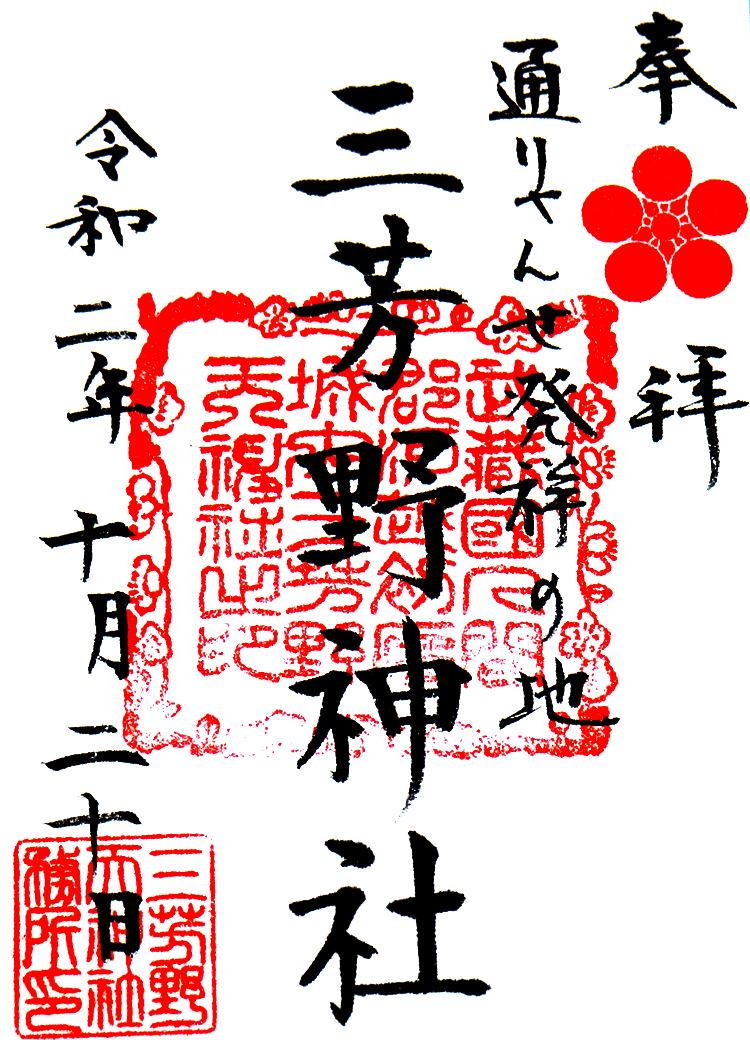 奉拝
通りゃんせ発祥の地
三芳野神社
令和二年十月二十日
武蔵國入間
郡河越初雁
城内三芳野
天神社之印
三芳野
天神社
務所印